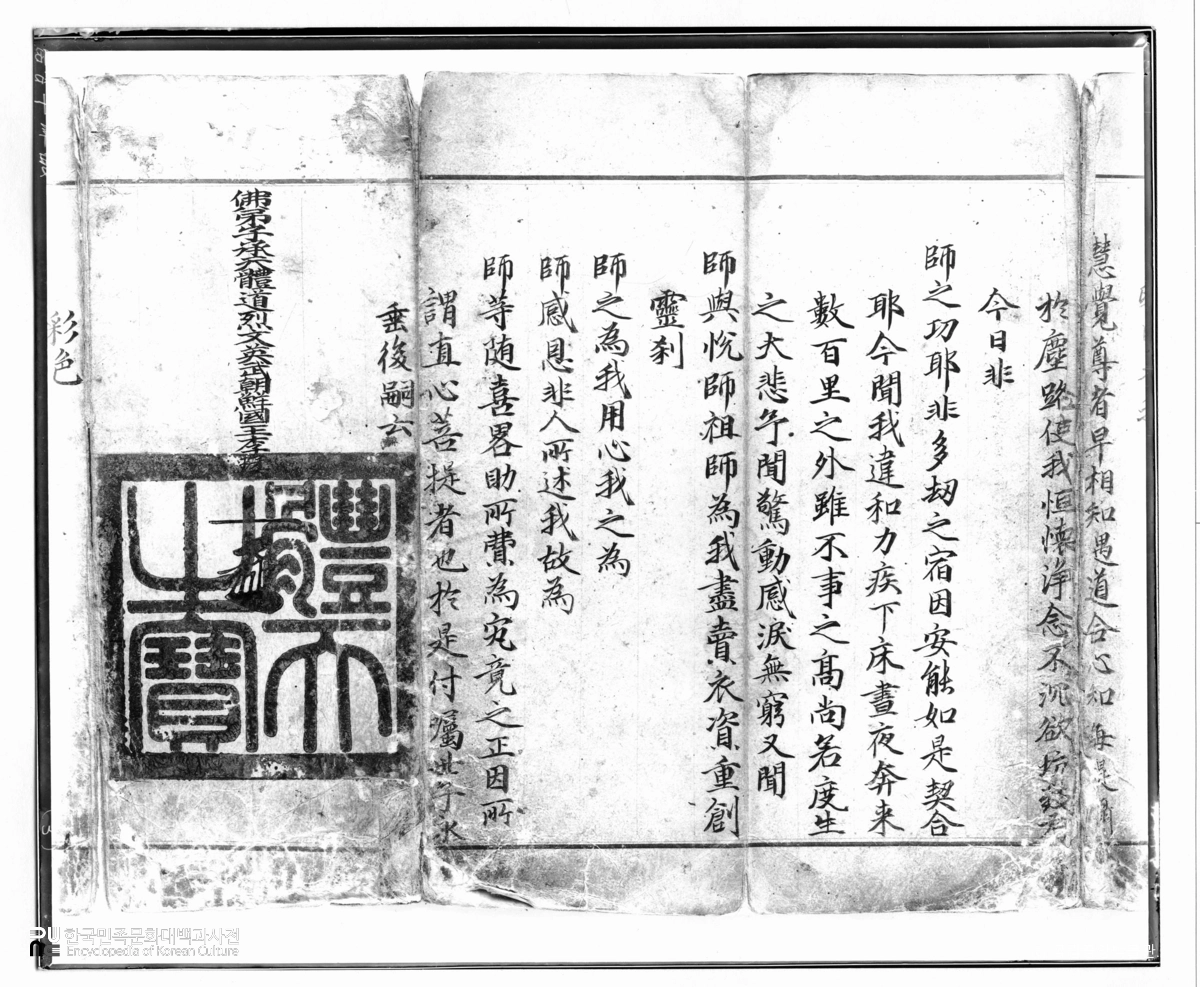 慧覺尊者早相知遇道合心和每提
於塵路使我恒懷淨念不沉欲坑致
今日非
師之功耶非多劫之宿因安能如是契合
耶今聞我違和力疾下床晝夜奔来
數百里之外雖不事之高尚若度生
之大悲予聞驚動感淚無窮又聞
師與悅師祖師為我盡賣衣資重創
靈刹
師之為我用心我之為
師感恩非人所述我故為
師等随喜畧助所費為究竟之正因所
謂直心菩提者也於是付囑世子永
垂後嗣云
佛弟子承天體道烈文英武朝鮮國王李
體天
之寶
彩色
한국민족문화대백과사전
Encyclopedia of Korean Culture